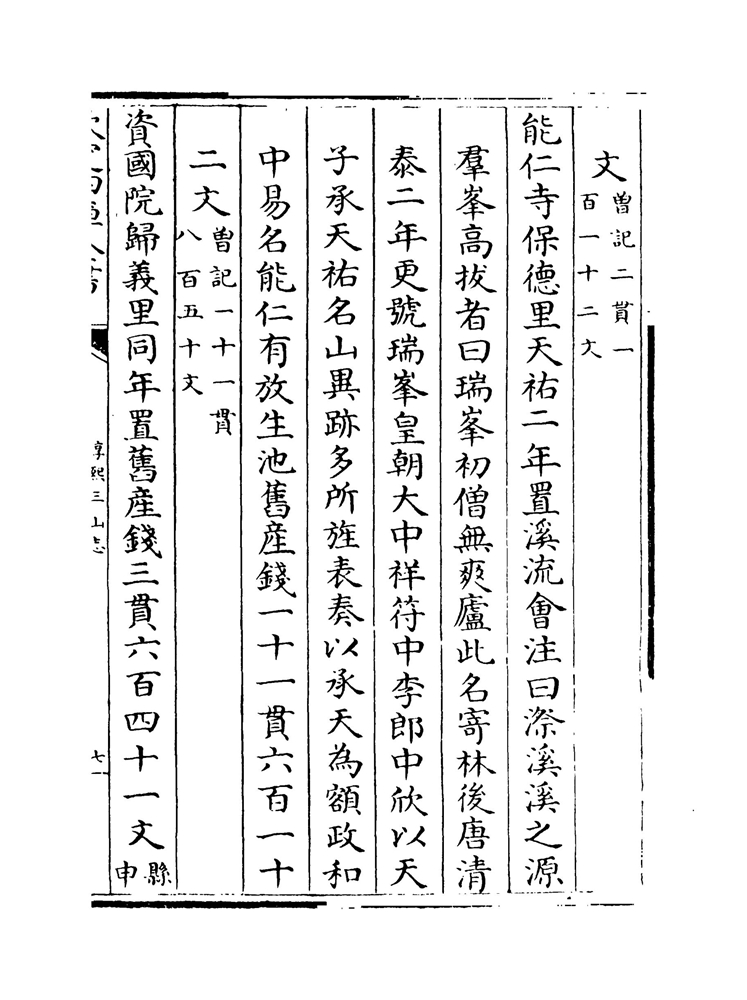 文曽記二貫一百一十二文
能仁寺保德里天祐二年置溪流會注曰漈溪溪之源
羣峯高拔者曰瑞峯初僧無爽廬此名寄林後唐清
泰二年更號瑞峯皇朝大中祥符中李郎中欣以天
子承天祐名山異跡多所旌表奏以承天為額政和
中易名能仁有放生池舊産錢一十一貫六百一十
二文曽記一十一貫八百五十文
資國院歸義里同年置舊産錢三貫六百四十一文縣申
淳熙三山志